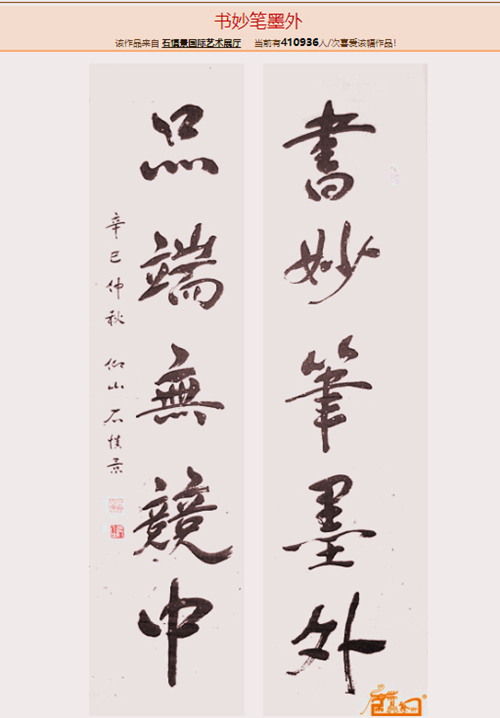 书妙笔墨外
该作品来自 石慎景国际艺术展厅 当前有410936人/次喜爱该幅作品!
書妙筆墨外
品端無競中
辛巳仲秋 仰山石慎景